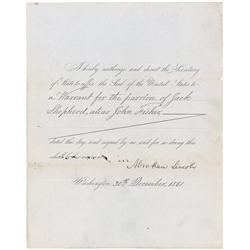 I hereby authorize and direct the Secretary
of State to affix the Seal of the United States to
a Warrant for the pardon of Jack
Shepherd, alias John Fisher
dated this day, and signed by me, and for so doing this
shall be
Abraham Lincoln
Washington, 30th December, 1861.